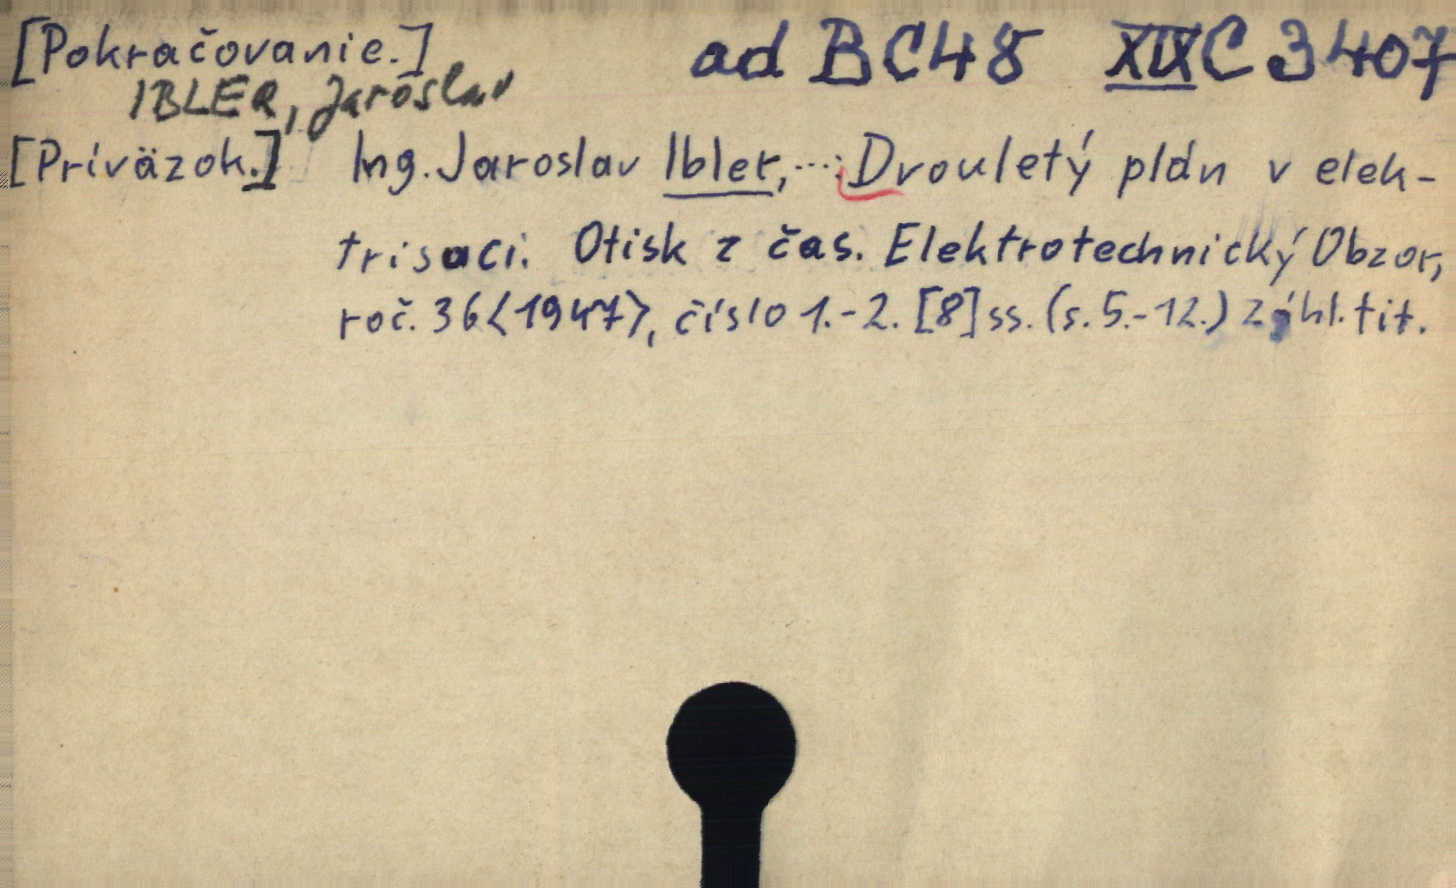 [Pokračovanie.] ad BC48 XIXC 3407
IBLER, Jaroslav
[Príväzok.] Ing. Jaroslav Ibler,...: Dvouletý plán v elek-
trisaci. Otisk z čas. Elektrotechnický Obzor,
roč. 36<1947>, číslo 1.-2. [8] ss. (s. 5.-12.) Záhl. tit.